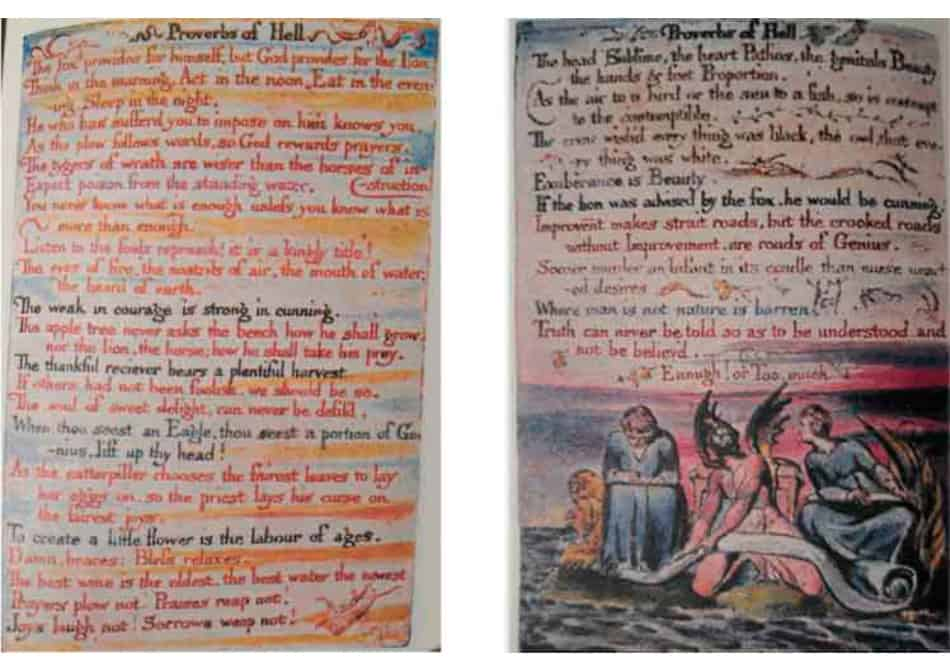 Proverbs of Hell
The fox provides for himself, but God provides for the lion.
Think in the morning, Act in the noon, Eat in the even-
ing, Sleep in the night.
He who has sufferd you to impose on him knows you.
As the plow follows words, so God rewards prayers.
The tygers of wrath are wiser than the horses of in-
Expect poison from the standing water. (-struction
You never know what is enough unless you know what is
more than enough.
Listen to the fools reproach! it is a kingly title!
The eyes of fire, the nostrils of air, the mouth of water,
the beard of earth.
The weak in courage is strong in cunning.
The apple tree never asks the beech how he shall grow,
nor the lion, the horse; how he shall take his prey.
The thankful reciever bears a plentiful harvest
If others had not been foolish, we should be so.
The soul of sweet delight, can never be defild.
When thou seest an Eagle, thou seest a portion of Ge-
-nius, lift up thy head!
As the catterpiller chooses the fairest leaves to lay
her eggs on, so the priest lays his curse on
the fairest joys.
To create a little flower is the labour of ages.
Damn, braces: Bless relaxes.
The best wine is the oldest, the best water the newest
Prayers plow not! Praises reap not!
Joys laugh not! Sorrows weep not!
Proverbs of Hell
The head Sublime, the heart Pathos, the genitals Beauty
the hands & feet Proportion.
As the air to a bird or the sea to a fish, so is contempt
to the contemptible.
The crow wishd every thing was black, the owl, that eve-
-ry thing was white.
Exuberance is Beauty.
If the lion was advised by the fox, he would be cunning.
Improvent makes strait roads, but the crooked roads
without Improvement, are roads of Genius.
Sooner murder an Infant in its cradle than nurse unact-
-ed desires
Where man is not nature is barren.
Truth can never be told so as to be understood and
not be believd.
Enough! or Too much